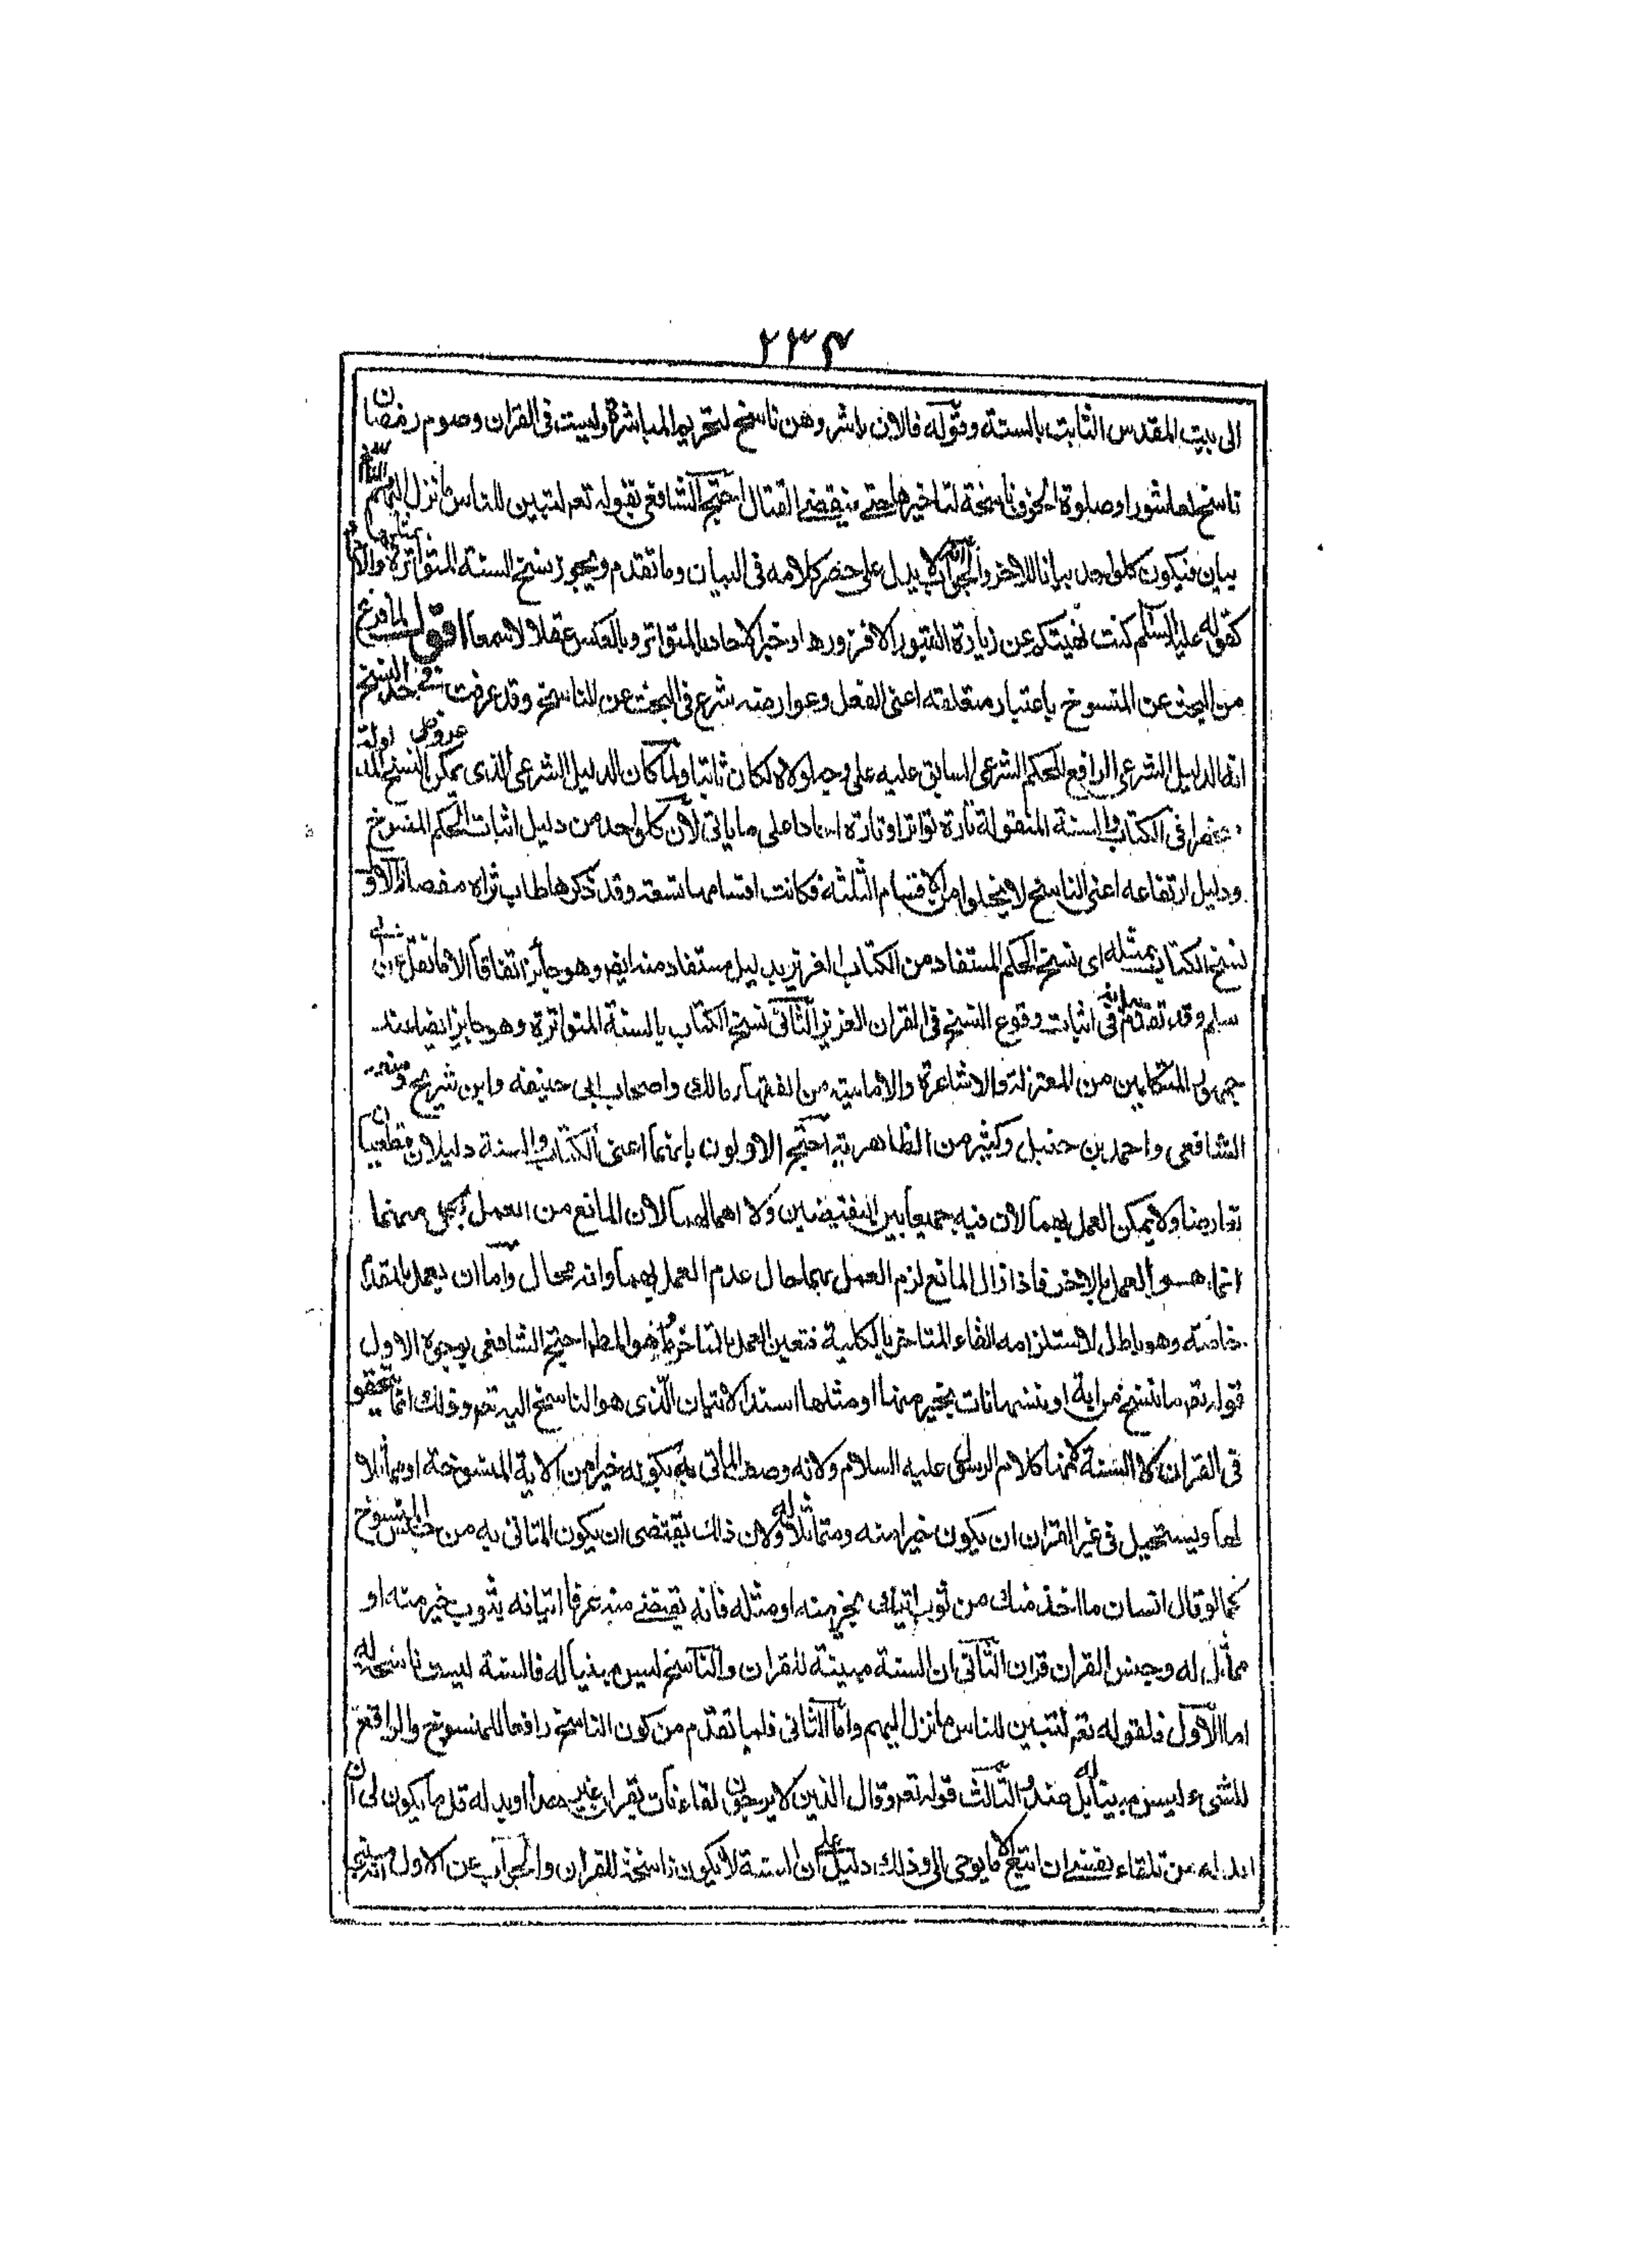 ٢٣٤
الى بيت المقدس الثابت بالسنة وقوله فالان باشروهن ناسخ لتحريم المباشرة وليست فى القران وصوم رمضان
ناسخ لعاشورا وصلوة الخوف ناسخة لتاخيرها حتى ينقضى القتال احتج الشافعى بقوله تعه لتبين للناس ما نزل اليهم
بيان فيكون كل واحد بيانا للاخر والجواب لا يدل على حصر كلامه فى البيان وما تقدم ويجوز نسخ السنة المتواترة بمثلها
كقوله عليه السلم كنت نهيتكم عن زيارة القبور الا فزوروها وخبر الاحاد بالمتواتر وبالعكس عقلا لا سمعا اقول لما فرغ
من البحث عن المنسوخ باعتبار متعلقه اعنى الفعل وعوارضه شرع فى البحث عن الناسخ وقد عرفت فى حد النسخ
انه الدليل الشرعى الرافع للحكم الشرعى السابق عليه على وجه لولاه لكان ثابتا ولما كان الدليل الشرعى الذى يمكن النسخ
منحصرا فى الكتاب والسنة المنقولة تارة تواترا وتارة احادا على ما ياتى لان كل واحد من دليل اثبات الحكم المنسوخ
ودليل ارتفاعه اعنى الناسخ لا يخلوا من الاقسام الثلثة فكانت اقسامهما تسعة وقد ذكرها طاب ثراه مفصلة الاول
نسخ الكتاب بمثله اى نسخ الحكم المستفاد من الكتاب العزيز بدليل مستفاد منه ايضه وهو جائز اتفاقا الا ما نقل عن ابى
سلم وقد تقدم فى اثبات وقوع النسخ فى القران العزيز الثانى نسخ الكتاب بالسنة المتواترة وهو جايز ايضا عند
جمهور المتكلمين من المعتزلة والاشاعرة والامامية من الفقهاء مالك واصحاب ابى حنيفه وابن شريح ومنعه
الشافعى واحمد بن حنبل وكثير من الظاهرية احتج الاولون بانهما اعنى الكتاب والسنة دليلان قطعيان
تعارضا ولا يمكن العمل بهما لان فيه جمعا بين النقيضين ولا اهمالهما لان المانع من العمل بكل منهما
انما هو العمل بالاخر فاذا زال المانع لزم العمل بهما حال عدم العمل بهما وانه محال واما ان يعمل بالمتقدم
خاصة وهو باطل لاستلزامه الغاء المتاخر بالكلية فتعين العمل بالمتاخر وهو المطه احتج الشافعى بوجوه الاول
قوله تعه ما ننسخ من اية او ننسها نات بخير منها او مثلها اسند الاتيان الذى هو الناسخ اليه تعه وذلك انما يتحقق
فى القران لا السنة لانها كلام الرسول عليه السلام ولانه وصف الماتى به بكونه خيرا من الاية المنسوخة او مماثلا
لها ويستحيل فى غير القران ان يكون خيرا منه ومماثلا له ولان ذلك يقتضى ان يكون الماتى به من جنس المنسوخ
كما لو قال انسان ما اخذ منك من ثوب اتيك بخير منه او مثله فانه يقتضى منه عرفا اتيانه بثوب خير منه او
مماثل له وجنس القران قران الثانى ان السنة مبينة للقران والناسخ ليس مبينا له فالسنة ليست ناسخة له
اما الاول فلقوله تعه لتبين للناس ما نزل اليهم واما الثانى فلما تقدم من كون الناسخ رافعا للمنسوخ والرافع
للشىء ليس مبينا له بل ضد له الثالث قوله تعه وقال الذين لا يرجون لقاءنا ائت بقران غير هذا او بدله قل ما يكون لى ان
ابدله من تلقاء نفسى ان اتبع الا ما يوحى الى وذلك دليل على ان السنة لا يكون ناسخة للقران والجواب عن الاول